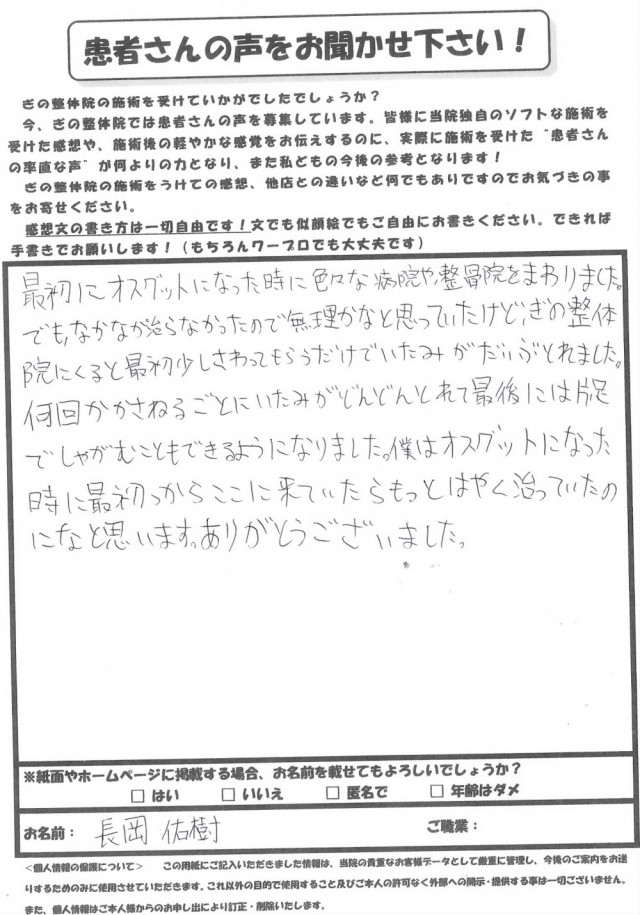 患者さんの声をお聞かせ下さい！
ぎの整体院の施術を受けていかがでしたでしょうか？
今、ぎの整体院では患者さんの声を募集しています。皆様に当院独自のソフトな施術を
受けた感想や、施術後の軽やかな感覚をお伝えするのに、実際に施術を受けた“患者さん
の率直な声”が何よりの力となり、また私どもの今後の参考となります！
ぎの整体院の施術をうけての感想、他店との違いなど何でもありですのでお気づきの事
をお寄せください。
感想文の書き方は一切自由です！文でも似顔絵でもご自由にお書きください。できれば
手書きでお願いします！（もちろんワープロでも大丈夫です）
最初にオスグットになった時に色々な病院や、整骨院をまわりました。
でも、なかなか治らなかったので無理かなと思っていたけど、ぎの整体
院にくると最初少しさわってもらうだけでいたみがだいぶとれました。
何回かかさねるごとにいたみがどんどんとれて最後には片足
でしゃがむこともできるようになりました。僕はオスグットになった
時に最初っからここに来ていたらもっとはやく治っていたの
になと思います。ありがとうございました。
※紙面やホームページに掲載する場合、お名前を載せてもよろしいでしょうか？
□ はい □ いいえ □ 匿名で □ 年齢はダメ
お名前： 長岡 佑樹 ご職業：
＜個人情報の保護について＞ この用紙にご記入いただきました情報は、当院の貴重なお客様データとして厳重に管理し、今後のご案内をお送
りするためのみに使用させていただきます。これ以外の目的で使用すること及びご本人の許可なく外部への開示・提供する事は一切ございません。
また、個人情報はご本人様からのお申し出により訂正・削除いたします。